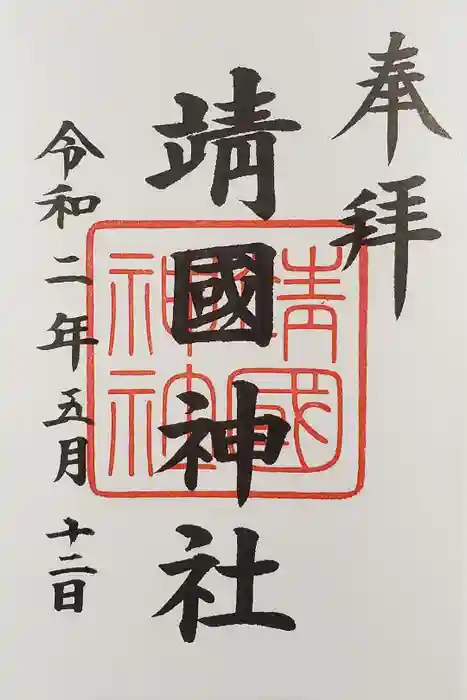 奉拝
靖國神社
令和二年五月十二日
靖國
神社